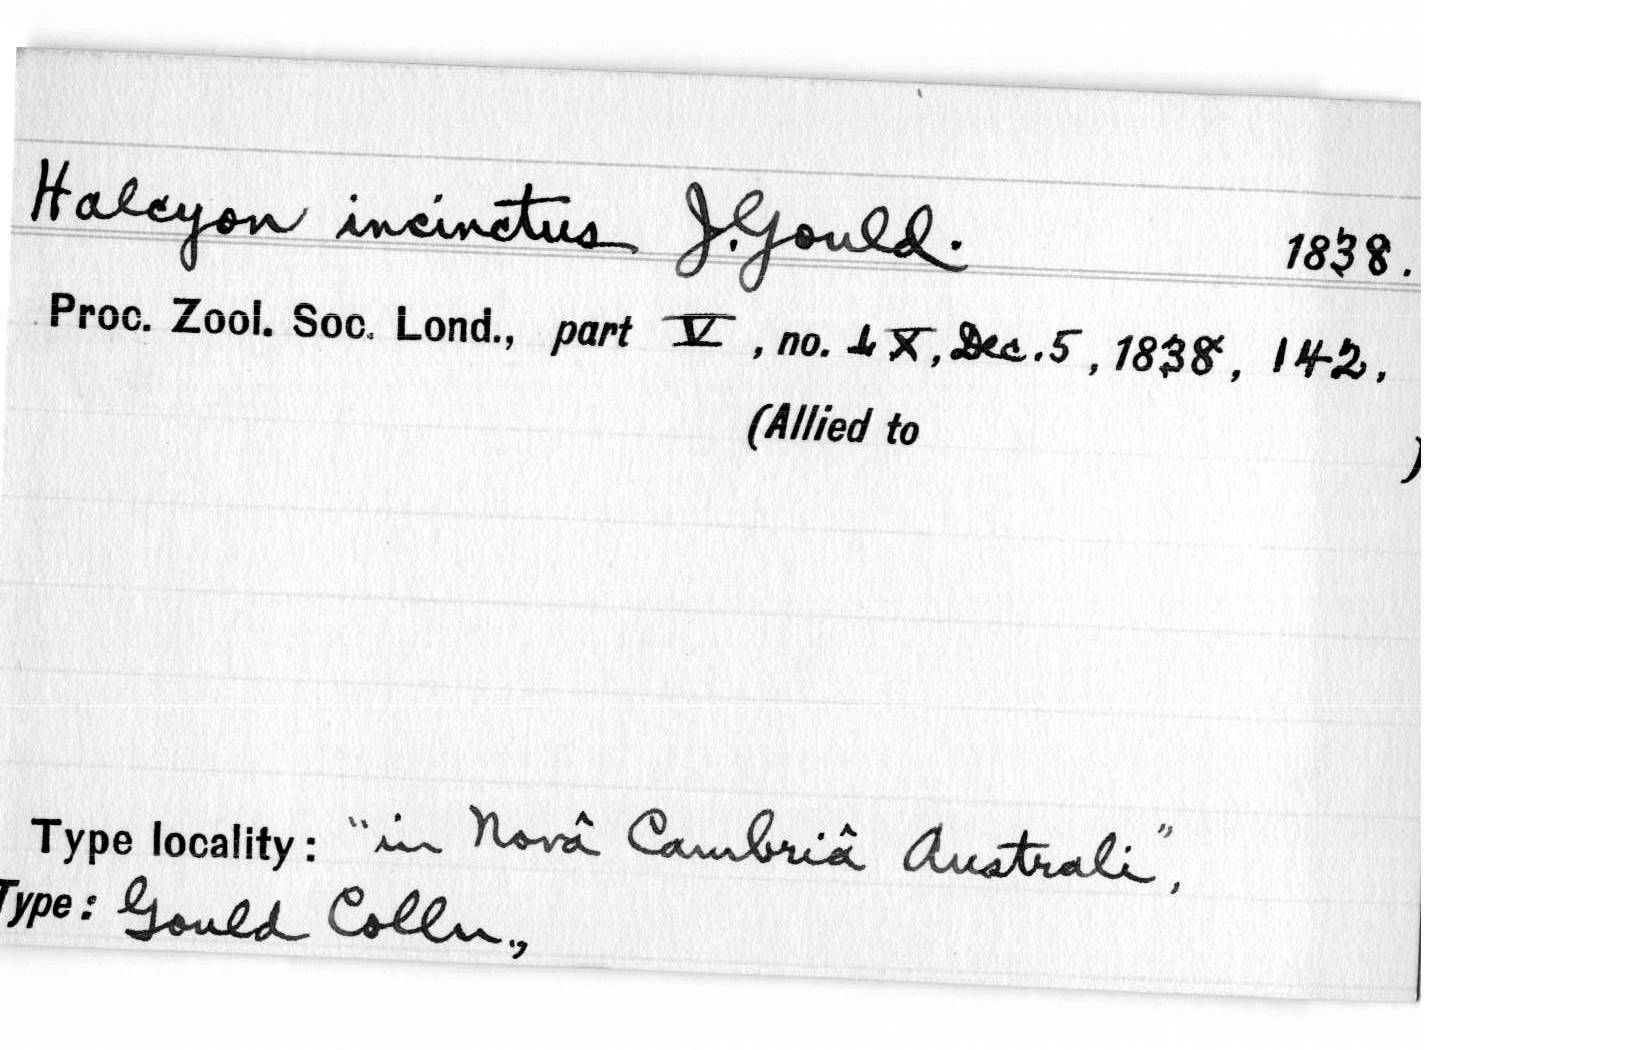 Halcyon incinctus J. Gould. 1838.
Proc. Zool. Soc. Lond., part V, no. LX, Dec. 5, 1838, 142.
(Allied to )
Type locality: "in Novâ Cambriâ Australi",
Type: Gould Colln.,